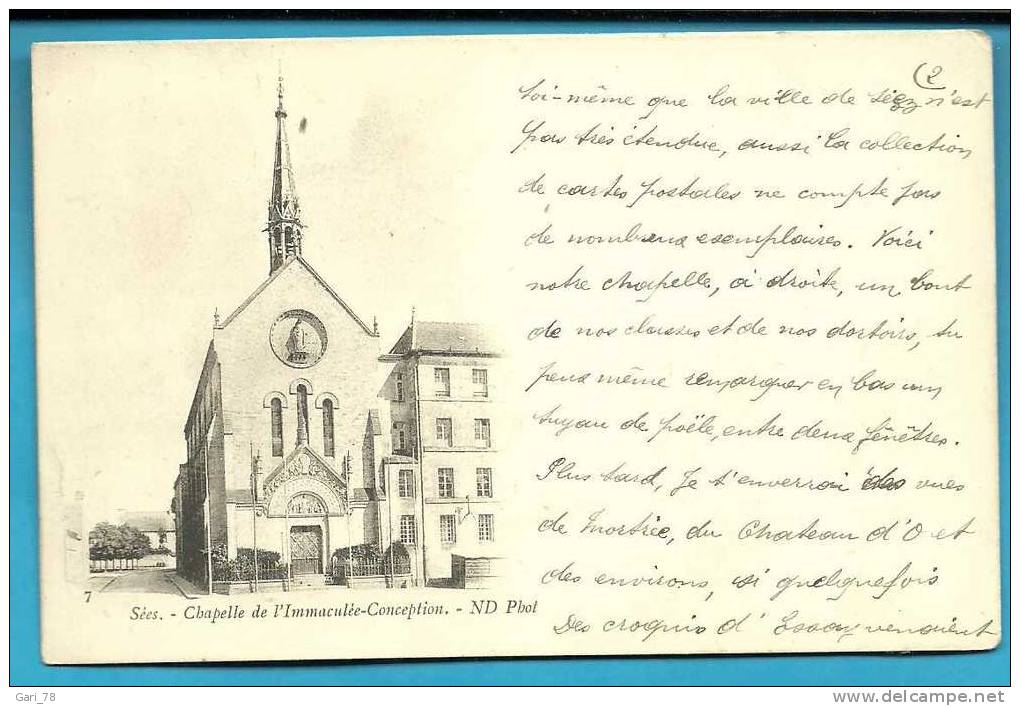 2
toi-même que la ville de Séez n'est
pas très étendue, aussi la collection
de cartes postales ne compte pas
de nombreux exemplaires. Voici
notre chapelle, à droite, un bout
de nos classes et de nos dortoirs, tu
peux même remarquer en bas un
tuyau de poële, entre deux fenêtres.
Plus tard, Je t'enverrai des vues
de Mortrée, du Chateau d'O et
des environs, si quelquefois
Des croquis d'Essay venaient
7
Sées. - Chapelle de l'Immaculée-Conception. - ND Phot
Gari_78
www.delcampe.net